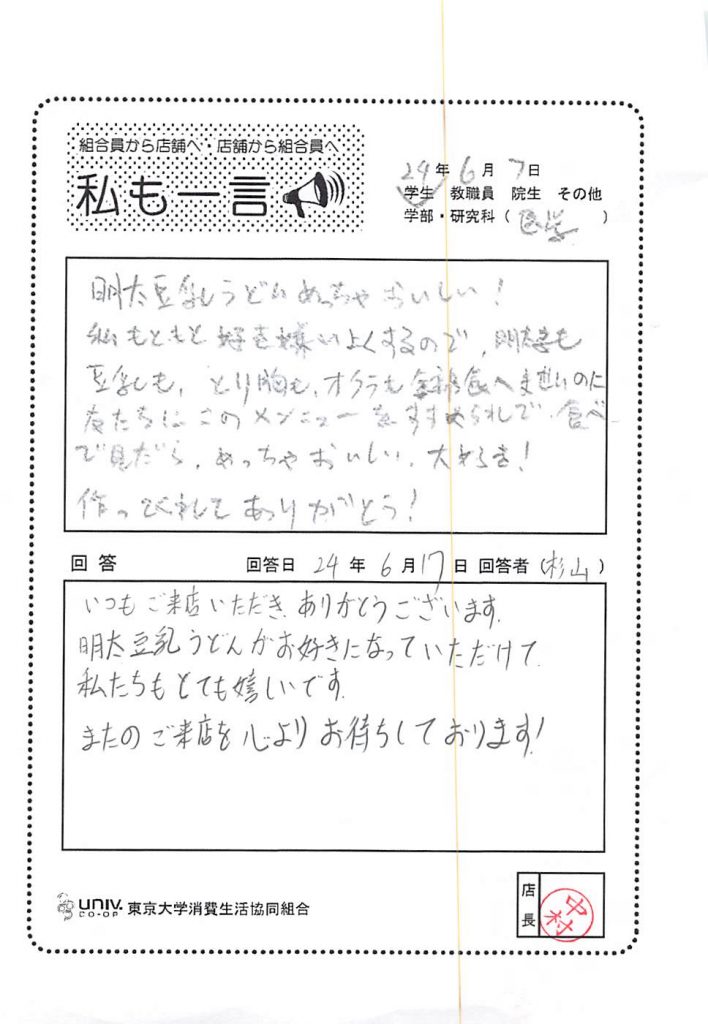 組合員から店舗へ・店舗から組合員へ
私も一言
24年6月7日
学生 教職員 院生 その他
学部・研究科（医学）
明太豆乳うどんめっちゃおいしい！
私もともと好き嫌いよくするので、明太子も
豆乳も、とり胸も、オクラも全部食べませんのに
友たちにこのメンニューをすすめられて、食べ
で見だら、めっちゃおいしい、大好き！
作ってくれてありがとう！
回答 回答日 24年6月17日 回答者（杉山）
いつもご来店いただき、ありがとうございます。
明太豆乳うどんがお好きになっていただけて、
私たちもとても嬉しいです。
またのご来店を心よりお待ちしております！
UNIV. CO-OP 東京大学消費生活協同組合
店長 中村